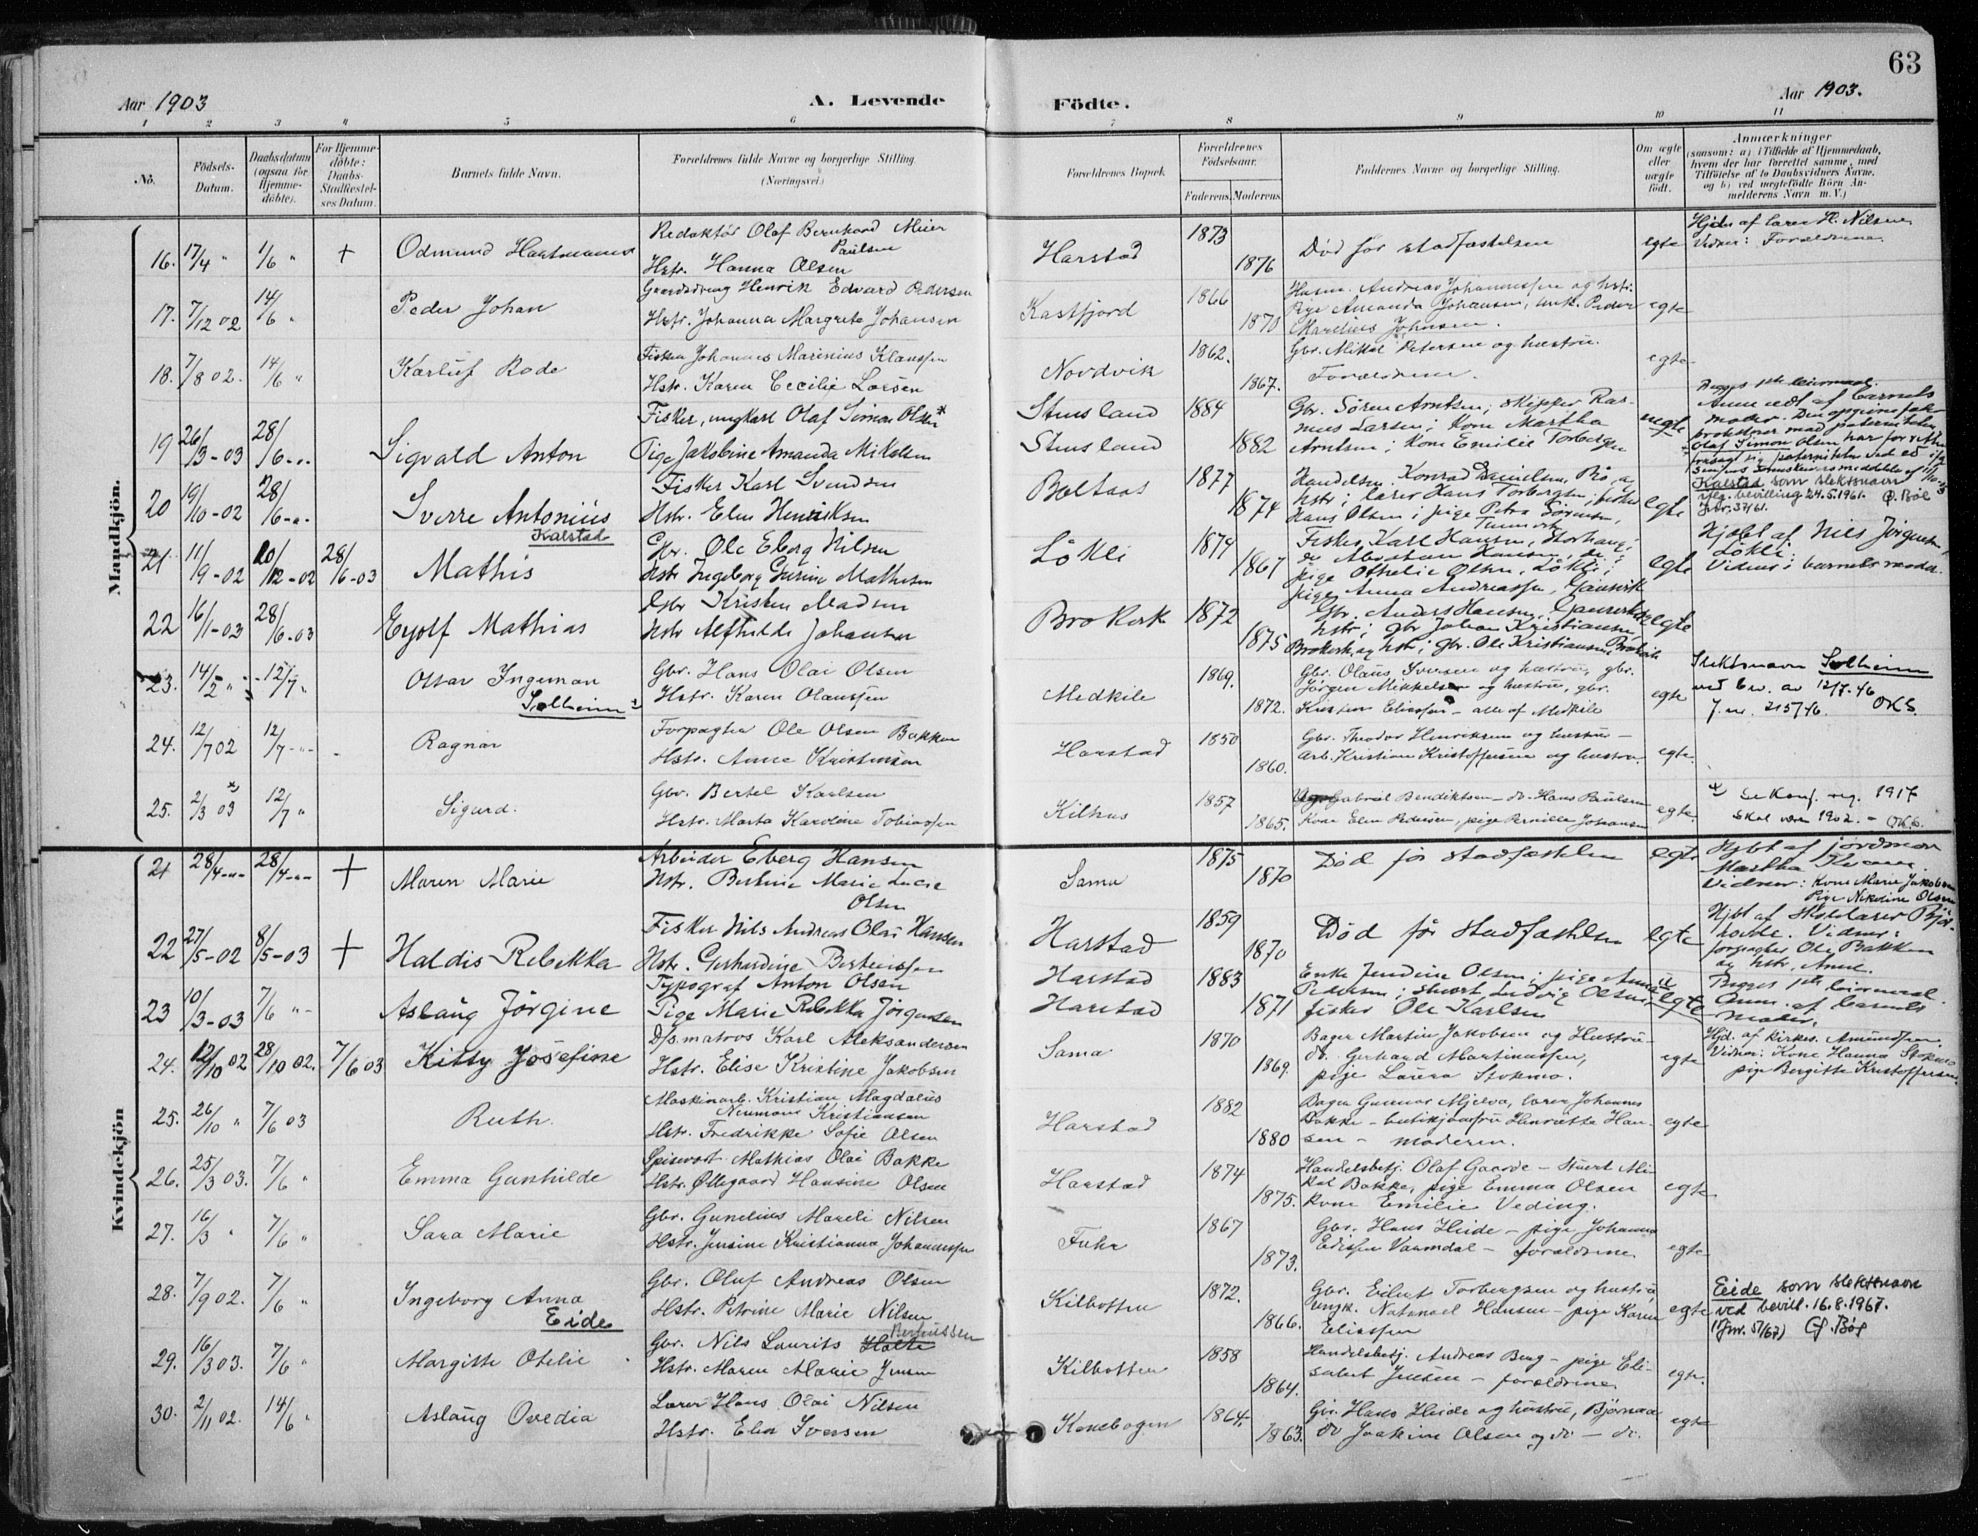 63
Aar 1903
A. Levende
Födte.
Aar 1903.
1 2 3 4 5 6 7 8 9 10 11
No.
Födsels-Datum.
Daabsdatum (ogsaa for Hjemme-döbte).
For Hjemme-döbte: Daabs-Stadfæstel-ses Datum.
Barnets fulde Navn.
Forældrenes fulde Navne og borgerlige Stilling. (Næringsvei.)
Forældrenes Bopæl.
Forældrenes Födselsaar.
Faderens. Moderens.
Faddernes Navne og borgerlige Stilling.
Om ægte eller uægte födt.
Anmærkninger
(saasom: a) i Tilfælde af Hjemmedaab,
hvem der har forrettet samme, med
Tilföielse af to Daabsvidners Navne,
og b) ved uægtefödte Börn An-
melderens Navn m. V.)
Mandkjön.
16. 17/4 " 1/6 " + Odmund Hartmann
Redaktør Olaf Bernhard Meier
Paulsen
Hstr. Hanna Olsen
Harstad 1873 1876
Død før stadfæstelsen
egte
Hjd. af lærer H. Nilsen
Vidner: Forældrene
17. 7/12 02 14/6 " Peder Johan
Gaardsdreng Henrik Edvard Pedersen
Hstr. Johanna Margrete Johansen
Kastfjord 1866 1870
Husm. Andreas Johannessen og hstr.
Pige Amanda Johansen, unk. Peder
Marelius Johnsen.
egte
18. 7/8 02. 14/6 " Karluf Rode
Fisker Johannes Marinius Klaussen
Hstr. Karen Cecilie Larsen
Nordvik 1862. 1867.
Gbr. Mikal Petersen og hustru.
Forældrene.
egte
19 26/3-03 28/6 - " Sigvald Anton
Fisker, ungkarl Olaf Simon Olsen *
Pige Jakobine Amanda Mikalsen
Stensland
Stensland
1884 1882
Gbr. Sören Arntsen; skipper Ras-
mus Larsen; kone Martha
Arntsen; kone Emilie Torbergsen
uegte
Begges 1ste leiermaal.
Anm. af barnets
moder. Den opgivne far
Olaf Simon Olsen har for retten
20 19/10-02 28/6 - " Sverre Antonius
Kalstad
Fisker Karl Svendsen
Hstr. Elen Henriksen
Bæltaas 1877 1874
Handelsm. Konrad Danielsen, Rö, og
hstr; lærer Hans Torbergsen; fisker
Hans Olsen; pige Petra Sörensen,
egte
Kalstad som slektsnavn
iflg. bevilling 24.5.1961. G. Böe
Jnr. 37/61.
21. 11/9-02 20/12-02 28/6-03 Mathis
Gbr. Ole Eberg Nilsen
Hstr Ingeborg Mathisen
Løkli 1874 1867
Fisker Karl Hansen, Storhaug;
do Abraham Hansen, do;
pige Othelie Olsen, Løkli;
pige Anna Andreassen, Gansvik
egte
Hjdbt af Nils Jörgensen,
Løkli;
Vidner: barnets moder.
22 16/1-03 28/6-03 Eyolf Mathias
Gbr Kristen Madsen
Hstr Alfhilde Johansen
Brokvik 1872 1875
Gbr. Anders Hansen, Gansvik
hstr; gbr Johan Kristiansen,
Brokvik og hstr; gbr. Ole Kristiansen, Brokvik
egte
23. 14/2 " 12/7 " Ottar Ingeman
Solheim
Gbr. Hans Olai Olsen
Hstr. Karen Olaussen
Medkile 1869. 1872.
Gbr. Olaus Iversen og hustru, gbr.
Jørgen Mikkelsen og hustru, gbr.
Kristen Eliassen - alle af Medkile
egte
Slektsnavn Solheim
ved bev. av 12/7-46
J.nr. 215/46. OKS.
24. 12/7 02 12/7 - " - Ragnar
Forpagter Ole Olsen Bakken
Hstr. Anne Kristensen
Harstad 1850 1860.
Gbr. Theodor Henriksen og hustru -
Arb. Kristian Kristoffersen og hustru.
egte.
25. 2/3 03 x) 12/7 " Sigurd.
Gbr. Bertel Karlsen
Hstr. Marta Karoline Tobiassen
Kilhus 1857 1865.
Gabriel Bendiktsen - do. Hans Paulsen
Kone Elen Pedersen, pige Pernille Johansen
egte
x) Se Konf. reg. 1917
Skal være 1902. - OKS.
Kvindekjön
21 28/4 - " 28/4 - " + Maren Marie
Arbeider Eberg Hansen
Hstr. Bertine Marie Lucie
Olsen
Sama 1875 1870
Död før stadfæstelsen
egte
Hjdbt af jordmor
Martha
Vidner: Kone Marie Jakobsen
Pige Nikoline Olsen
22 27/5-02 8/5-03 + Haldis Rebekka
Fisker Nils Andreas Olai Hansen
Hstr. Gerhardine Berteussen
Harstad 1859 1870
Död før stadfæstelsen
egte
Hjdbt af
Vidner:
forpagter Ole Bakken
og hstr, Anne.
23 10/3-03 7/6 " - Aslaug Jörgine
Typograf Anton Olsen
Pige Marie Rebekka Jörgensen
Harstad
Harstad
1883 1871
Enke Jendine Olsen; pige
Pedersen; stuert Ludvig Olsen,
fisker Ole Karlsen
uegte
Begges 1ste leiermaal.
Anm. af barnets
moder.
24. 12/10 02 28/10 02. 7/6 03 Kitty Josefine
D/s. matros Karl Aleksandersen
Hstr. Elise Kristine Jakobsen
Sama 1870 1869.
Bager Martin Jakobsen og Hustru -
do. Gerhard Martinussen,
pige Laura Stokmo.
egte
Hjd. af kirkes. Amundsen.
Vidner: Kone Hanna Stokmo
pige Bergitte Kristoffersen.
25. 26/10 " 7/6 03 Ruth.
Maskinarb. Kristian Magdalus
Neumann Kristiansen
Hstr. Fredrikke Sofie Olsen
Harstad 1882 1880
Bager Gunnar Mjelva, lærer Johannes
Bakke - butikjomfru Henriette Han-
sen - moderen.
egte
26. 25/3 03. 7/6 " Emma Gunhilde
Spisevert Mathias Olai Bakke
Hstr. Ollegaard Hansine Olsen
Harstad 1874 1875.
Handelsbetj. Olaf Gaarde - Stuert Mi-
kal Bakke, pige Emma Olsen
kone Emilie Veding.
egte
27. 16/3 " 7/6 " Sara Marie
Gbr. Gunelius Mareli Nilsen
Hstr. Jensine Kristianna Johannessen
Fuhr 1867 1873.
Gbr. Hans Heide - pige Johanna
Edissen Vaumdal - forældrene.
egte
28. 7/9 02. 7/6 " Ingeborg Anna
Eide
Gbr. Oluf Andreas Olsen
Hstr. Petrine Marie Nilsen
Kilbotten 1872. 1866.
Gbr. Eilert Torbergsen og hustru
ungk. Natanael Hansen - pige Karen
Eliassen
egte
Eide som slektsnavn
ved bevill. 16.8.1967.
(Jnr. 57/67) G. Böe
29. 16/3 03. 7/6 " Margitte Otelie
Gbr. Nils Laurits Holte Berteussen
Hstr. Maren Marie Jensen
Kilbotten 1858 1864.
Handelsbetj. Andreas Berg - pige Eli-
sabet Jensen - forældrene.
egte.
30. 2/11 02. 14/6 " Aslaug Ovedia
Lærer Hans Olai Nilsen
Hstr. Elen Iversen
Kanebogen 1864. 1863.
Gbr. Hans Heide og hustru, Bjørnaa
do Joakim Olsen og do - do.
egte